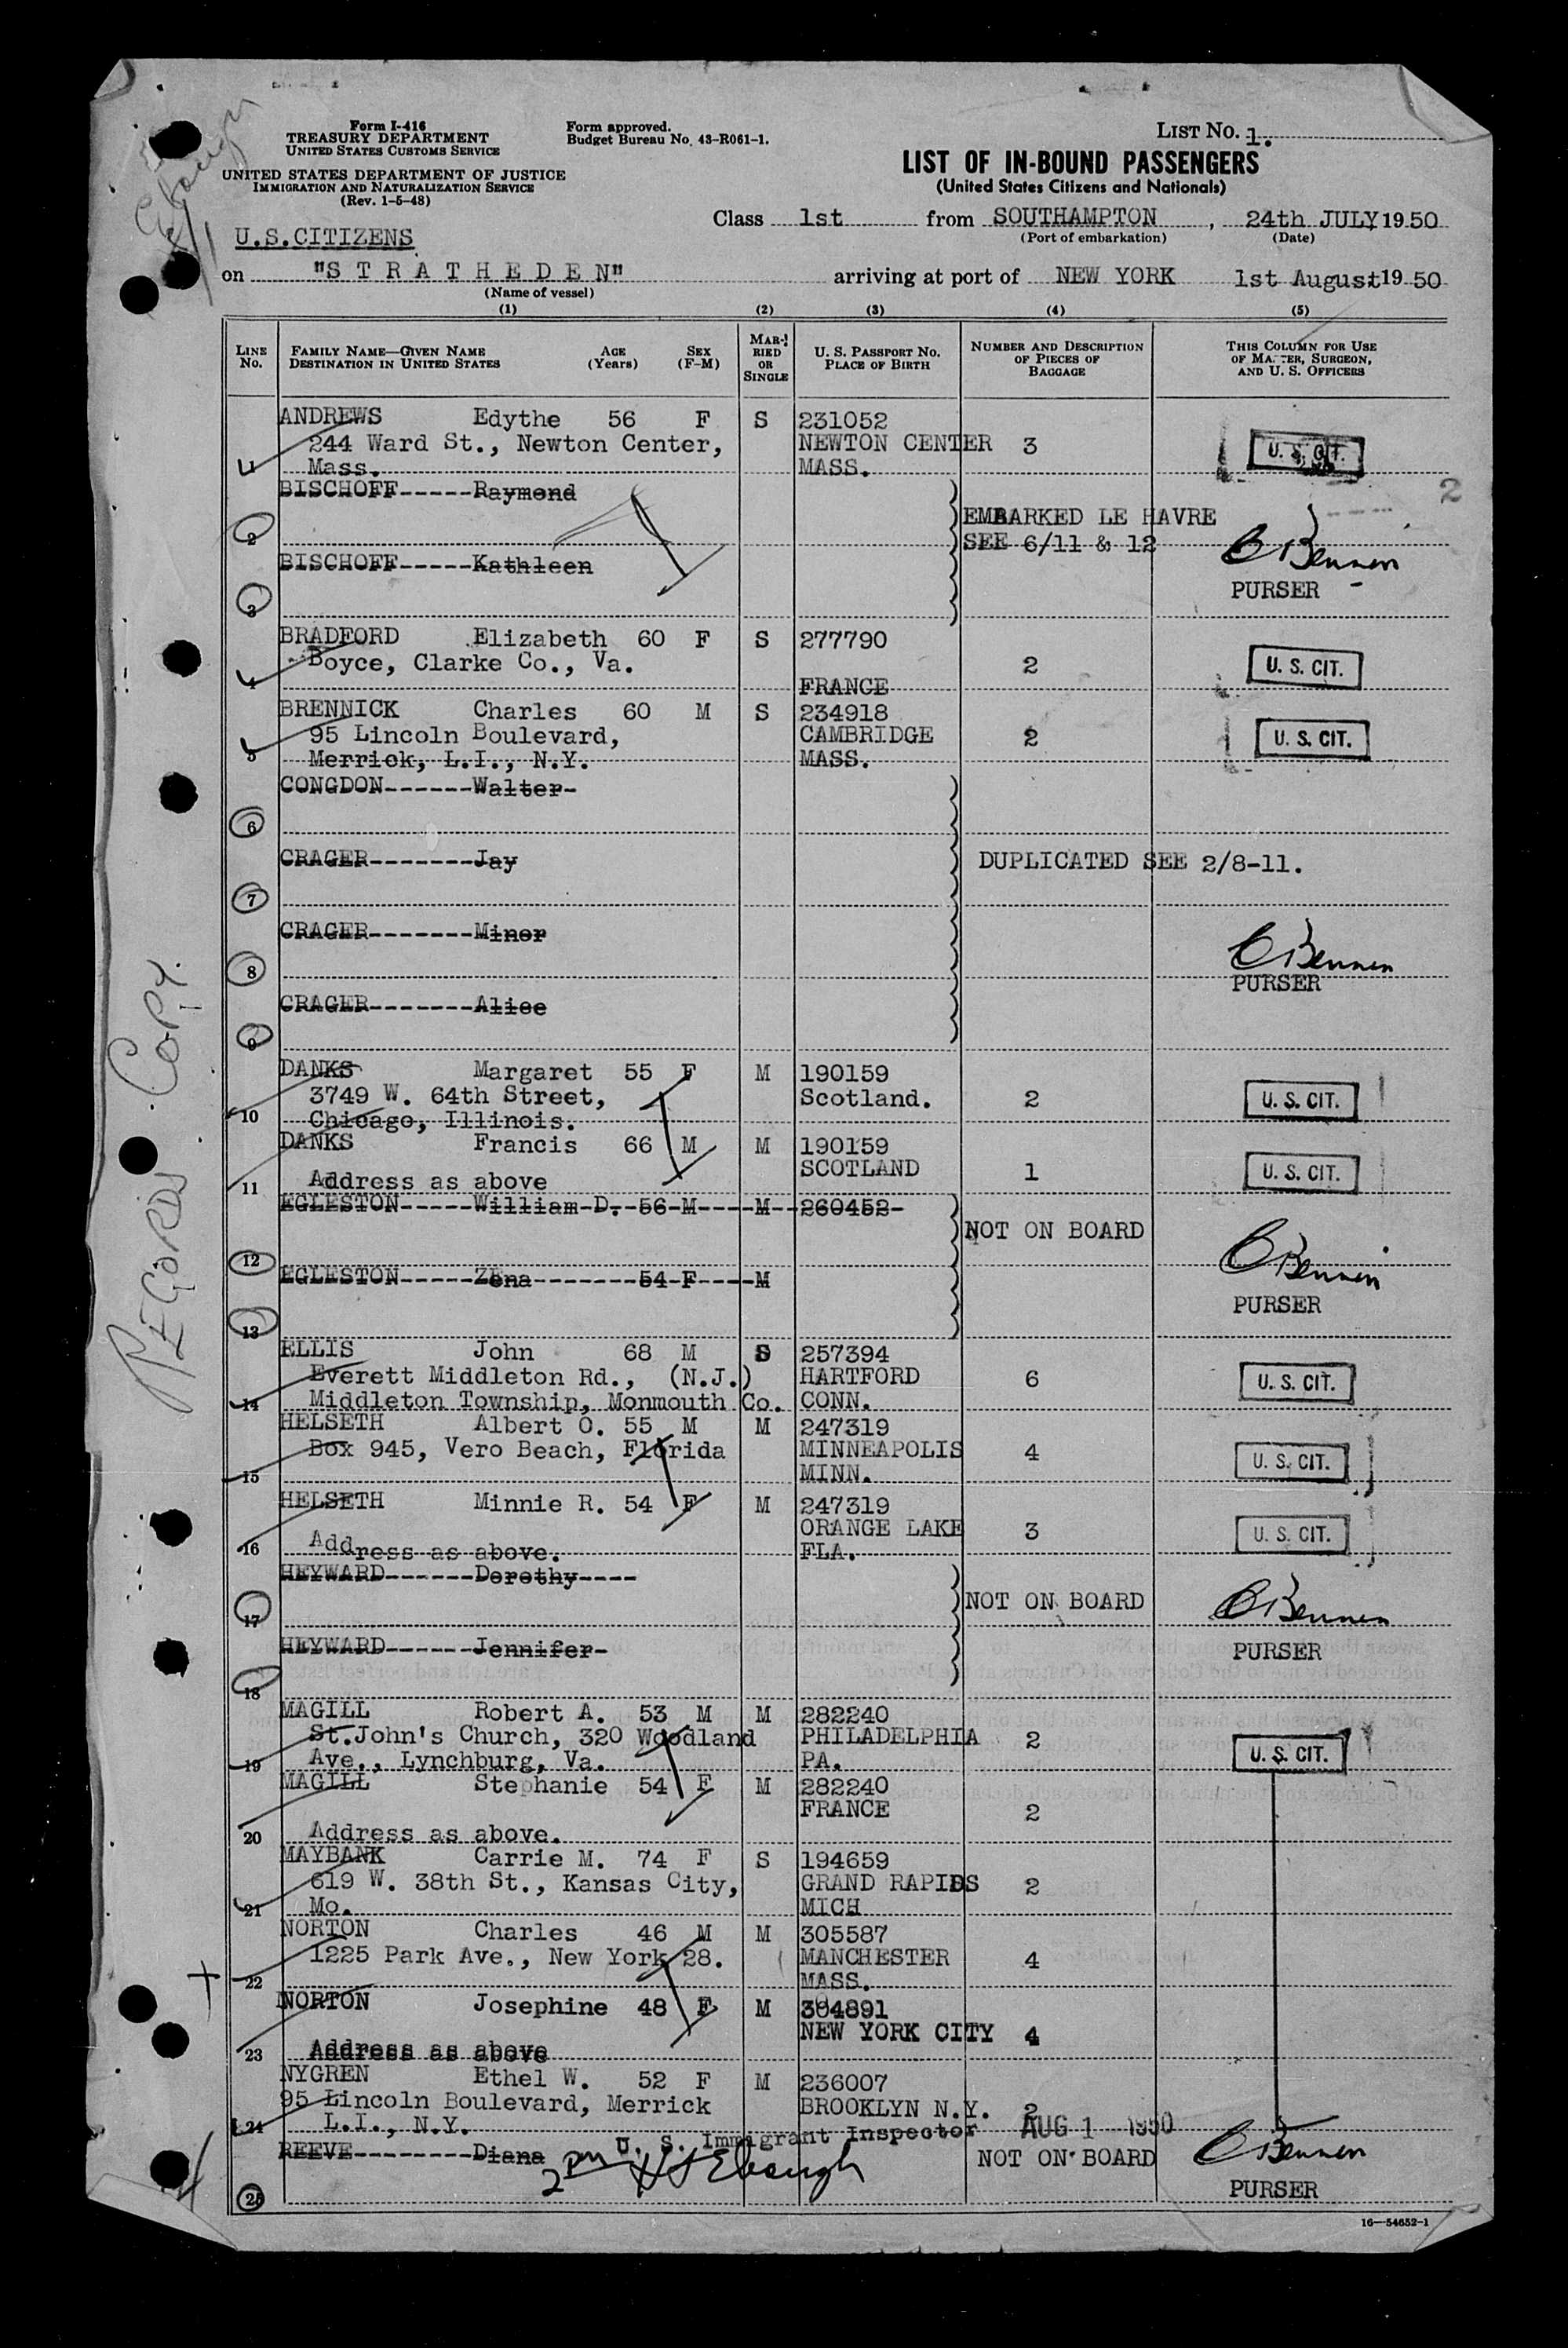 Form I-416
TREASURY DEPARTMENT
UNITED STATES CUSTOMS SERVICE
UNITED STATES DEPARTMENT OF JUSTICE
IMMIGRATION AND NATURALIZATION SERVICE
(Rev. 1-5-48)
Form approved.
Budget Bureau No. 43-R061-1.
LIST NO. 1.
LIST OF IN-BOUND PASSENGERS
(United States Citizens and Nationals)
Class 1st from SOUTHAMPTON, 24th JULY 1950
(Port of embarkation) (Date)
U.S.CITIZENS
on "S T R A T H E D E N" arriving at port of NEW YORK 1st August 1950
(Name of vessel)
(1) (2) (3) (4) (5)
LINE NO.
FAMILY NAME—GIVEN NAME AGE (Years) SEX (F-M)
DESTINATION IN UNITED STATES
MARRIED OR SINGLE
U. S. PASSPORT NO.
PLACE OF BIRTH
NUMBER AND DESCRIPTION OF PIECES OF BAGGAGE
THIS COLUMN FOR USE OF MASTER, SURGEON, AND U. S. OFFICERS
ANDREWS Edythe 56 F S 231052
244 Ward St., Newton Center, NEWTON CENTER 3 U. S. CIT.
1 Mass. MASS.
BISCHOFF------Raymond 2
EMBARKED LE HAVRE
2 SEE 6/11 & 12 C Bennen
BISCHOFF------Kathleen PURSER
3
BRADFORD Elizabeth 60 F S 277790
Boyce, Clarke Co., Va. 2 U. S. CIT.
4 FRANCE
BRENNICK Charles 60 M S 234918
95 Lincoln Boulevard, CAMBRIDGE 2 U. S. CIT.
5 Merrick, L.I., N.Y. MASS.
CONGDON-------Walter-
6
CRAGER--------Jay DUPLICATED SEE 2/8-11.
7
CRAGER--------Minor C Bennen
8 PURSER
CRAGER--------Alice
9
DANKS Margaret 55 F M 190159
3749 W. 64th Street, Scotland. 2 U. S. CIT.
10 Chicago, Illinois.
DANKS Francis 66 M M 190159
SCOTLAND 1 U. S. CIT.
11 Address as above
EGLESTON------William-D.-56-M----M--260452-
NOT ON BOARD
12 C Bennen
EGLESTON------Zena--------54-F----M
PURSER
13
ELLIS John 68 M S 257394
Everett Middleton Rd., (N.J.) HARTFORD 6 U. S. CIT.
14 Middleton Township, Monmouth Co. CONN.
HELSETH Albert O. 55 M M 247319
Box 945, Vero Beach, Florida MINNEAPOLIS 4 U. S. CIT.
15 MINN.
HELSETH Minnie R. 54 F M 247319
ORANGE LAKE 3 U. S. CIT.
16 Address as above. FLA.
HEYWARD-------Dorothy----
NOT ON BOARD C Bennen
17
HEYWARD-------Jennifer- PURSER
18
MAGILL Robert A. 53 M M 282240
St.John's Church, 320 Woodland PHILADELPHIA 2 U. S. CIT.
19 Ave., Lynchburg, Va. PA.
MAGILL Stephanie 54 F M 282240
FRANCE 2
20 Address as above.
MAYBANK Carrie M. 74 F S 194659
619 W. 38th St., Kansas City, GRAND RAPIDS 2
21 Mo. MICH
NORTON Charles 46 M M 305587
1225 Park Ave., New York 28. MANCHESTER 4
22 MASS.
NORTON Josephine 48 F M 304891
NEW YORK CITY 4
23 Address as above
NYGREN Ethel W. 52 F M 236007
95 Lincoln Boulevard, Merrick BROOKLYN N.Y. 2
24 L.I., N.Y. AUG 1 1950
U. S. Immigrant Inspector
REEVE---------Diana NOT ON BOARD C Bennen
25 PURSER
16—54652-1
RECORDS COPY.